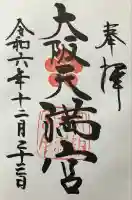 奉拝
大阪天満宮
令和六年十二月二十三日